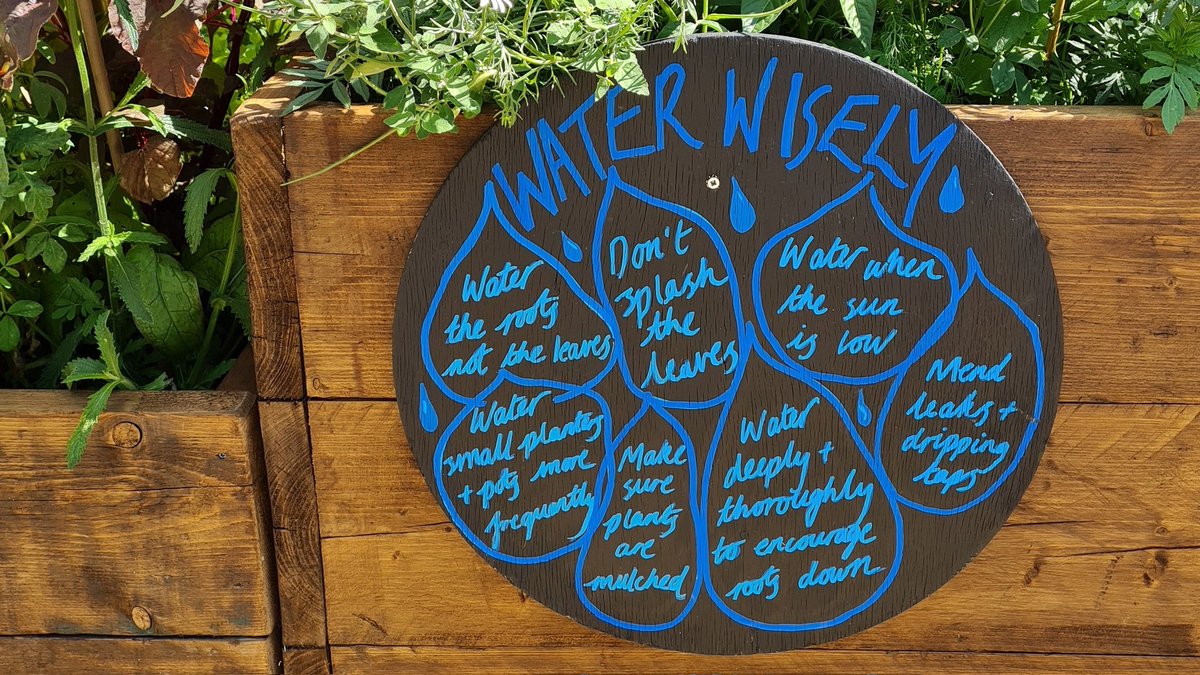 WATER WISELY
Water
the roots
not the leaves
Don't
splash
the
leaves
Water when
the sun
is low
Mend
leaks +
dripping
taps
Water
small planters
+ pots more
frequently
Make
sure
plants
are
mulched
Water
deeply +
thoroughly
to encourage
roots down